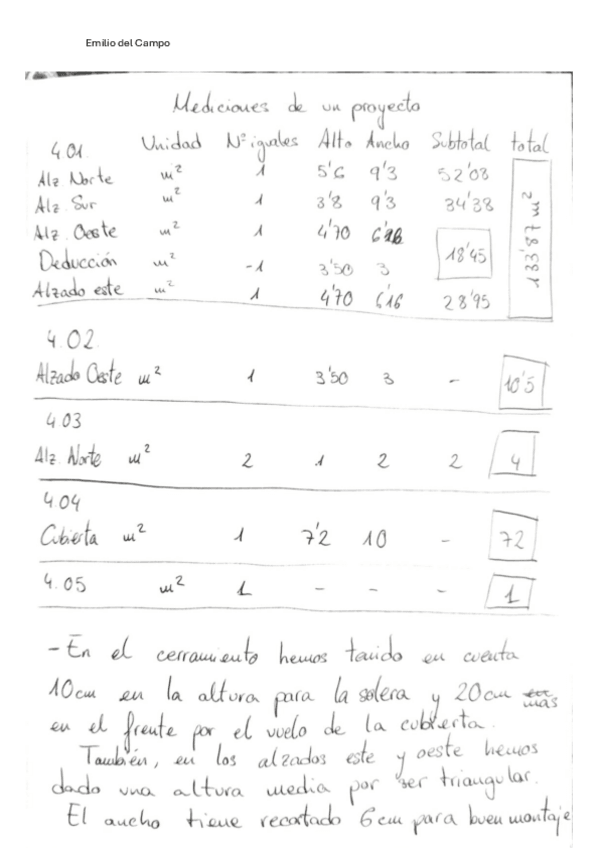 Emilio del Campo
Mediciones de un proyecto
4.01 Unidad Nº iguales Alto Ancho Subtotal total
Alz. Norte m² 1 5'6 9'3 52'08
Alz. Sur m² 1 3'8 9'3 34'38
Alz. Oeste m² 1 4'70
Deducción m² -1 3'50 3 18'45
Alzado este m² 1 4'70 6'16 28'95
133'87 m²
4.02.
Alzado Oeste m² 1 3'50 3 - 10'5
4.03
Alz. Norte m² 2 1 2 2 4
4.04
Cubierta m² 1 7'2 10 - 72
4.05 m² 1 - - - 1
- En el cerramiento hemos tenido en cuenta
10cm en la altura para la solera y 20cm más
en el frente por el vuelo de la cubierta.
También, en los alzados este y oeste hemos
dado una altura media por ser triangular.
El ancho tiene recortado 6cm para buen montaje